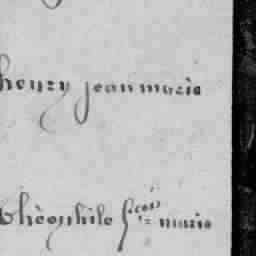 henry jean marie
théophile fcois = marie